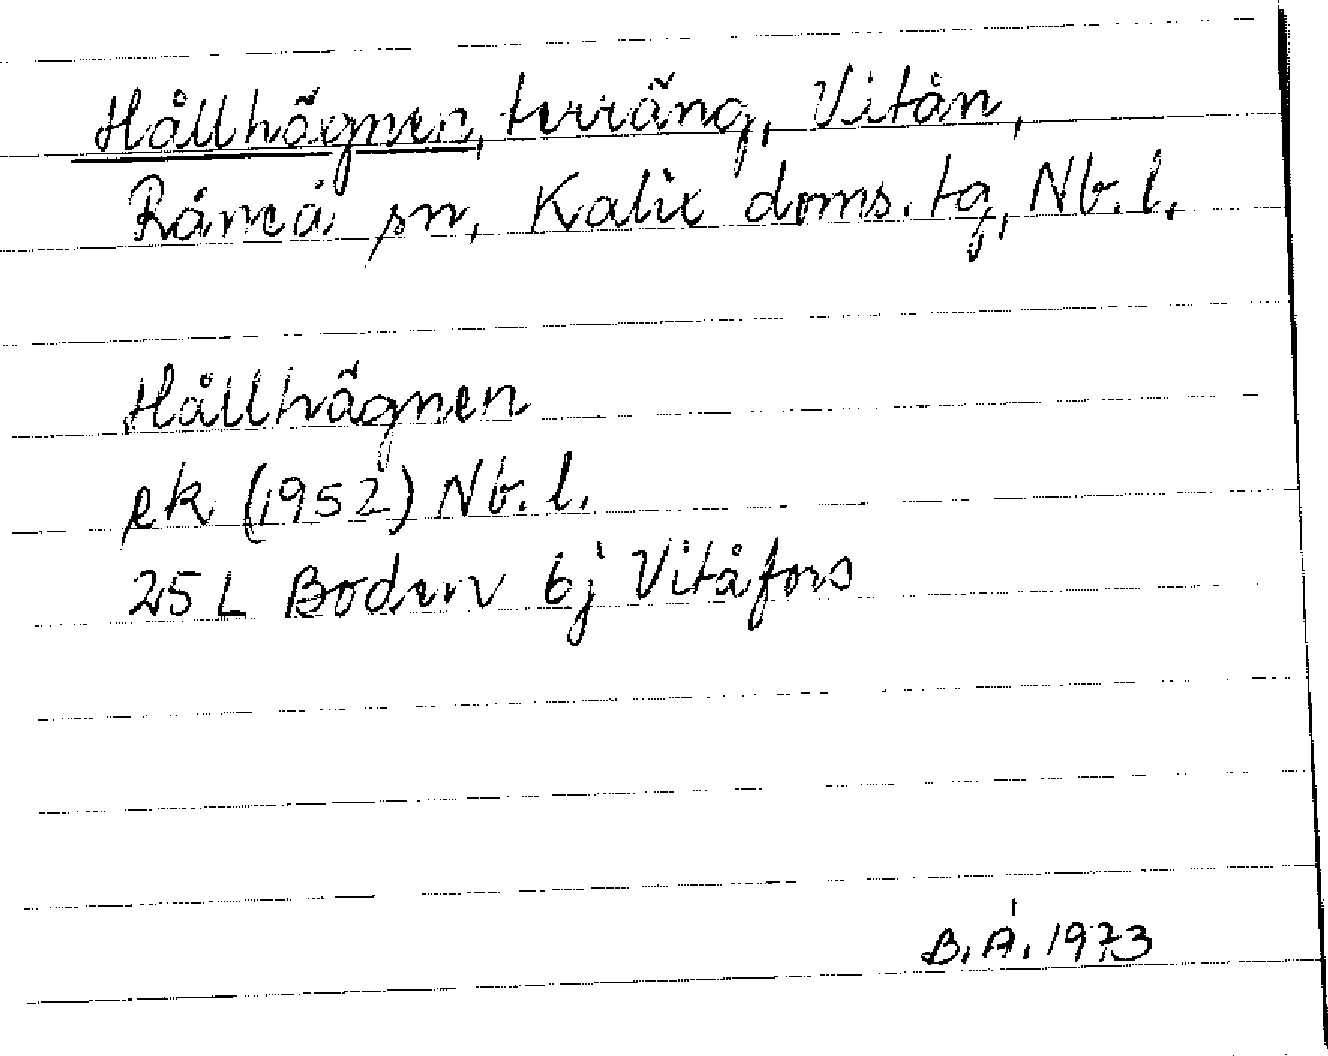 Hållhägnen, terräng, Vitån,
Råneå sn, Kalix doms. tg, Nb. l.
Hållhägnen
ek (1952) Nb. l.
25 L Boden 6j Vitåfors
B. Å. 1973